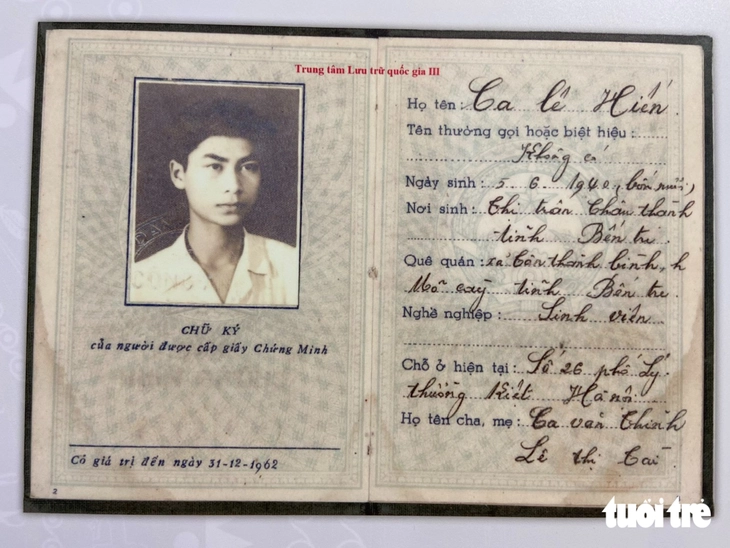 Trung tâm Lưu trữ quốc gia III
CHỮ KÝ
của người được cấp giấy Chứng Minh
Có giá trị đến ngày 31-12-1962
2
Họ tên: Ca lê Hiến
Tên thường gọi hoặc biệt hiệu:
Không có
Ngày sinh: 5.6.1940 (bốn mươi)
Nơi sinh: Thị trấn Châu thành
tỉnh Bến tre
Quê quán: xã Tân thành bình, h
Mỏ cày tỉnh Bến tre.
Nghề nghiệp: Sinh viên
Chỗ ở hiện tại: Số 26 phố Lý
thường Kiệt Hà nội
Họ tên cha, mẹ: Ca văn Thỉnh
Lê thị
tuổi trẻ